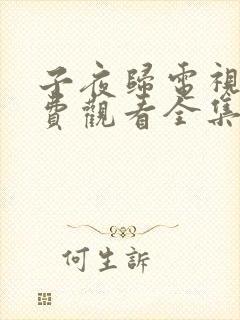 子夜歸電視
費觀看全集
何生訴